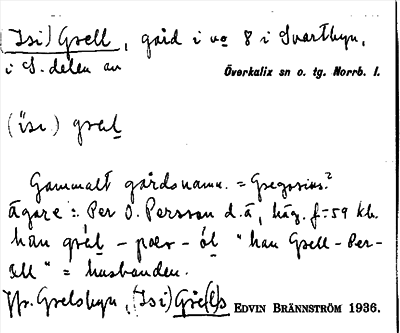 (Isi) Grell, gård i no 8 i Svartbyn,
i S. delen av
Överkalix sn o. tg. Norrb. l.
(ìsı.) græl
Gammalt gårdsnamn. = Gregorius?
Ägare: Per O. Persson d.ä, häg. f. 59 kh.
han græl - pær - ól "han Grell-Per-
Ell" = husbonden.
Jfr. Grelsbyn, (Isi) Gre(l)s
EDVIN BRÄNNSTRÖM 1936.